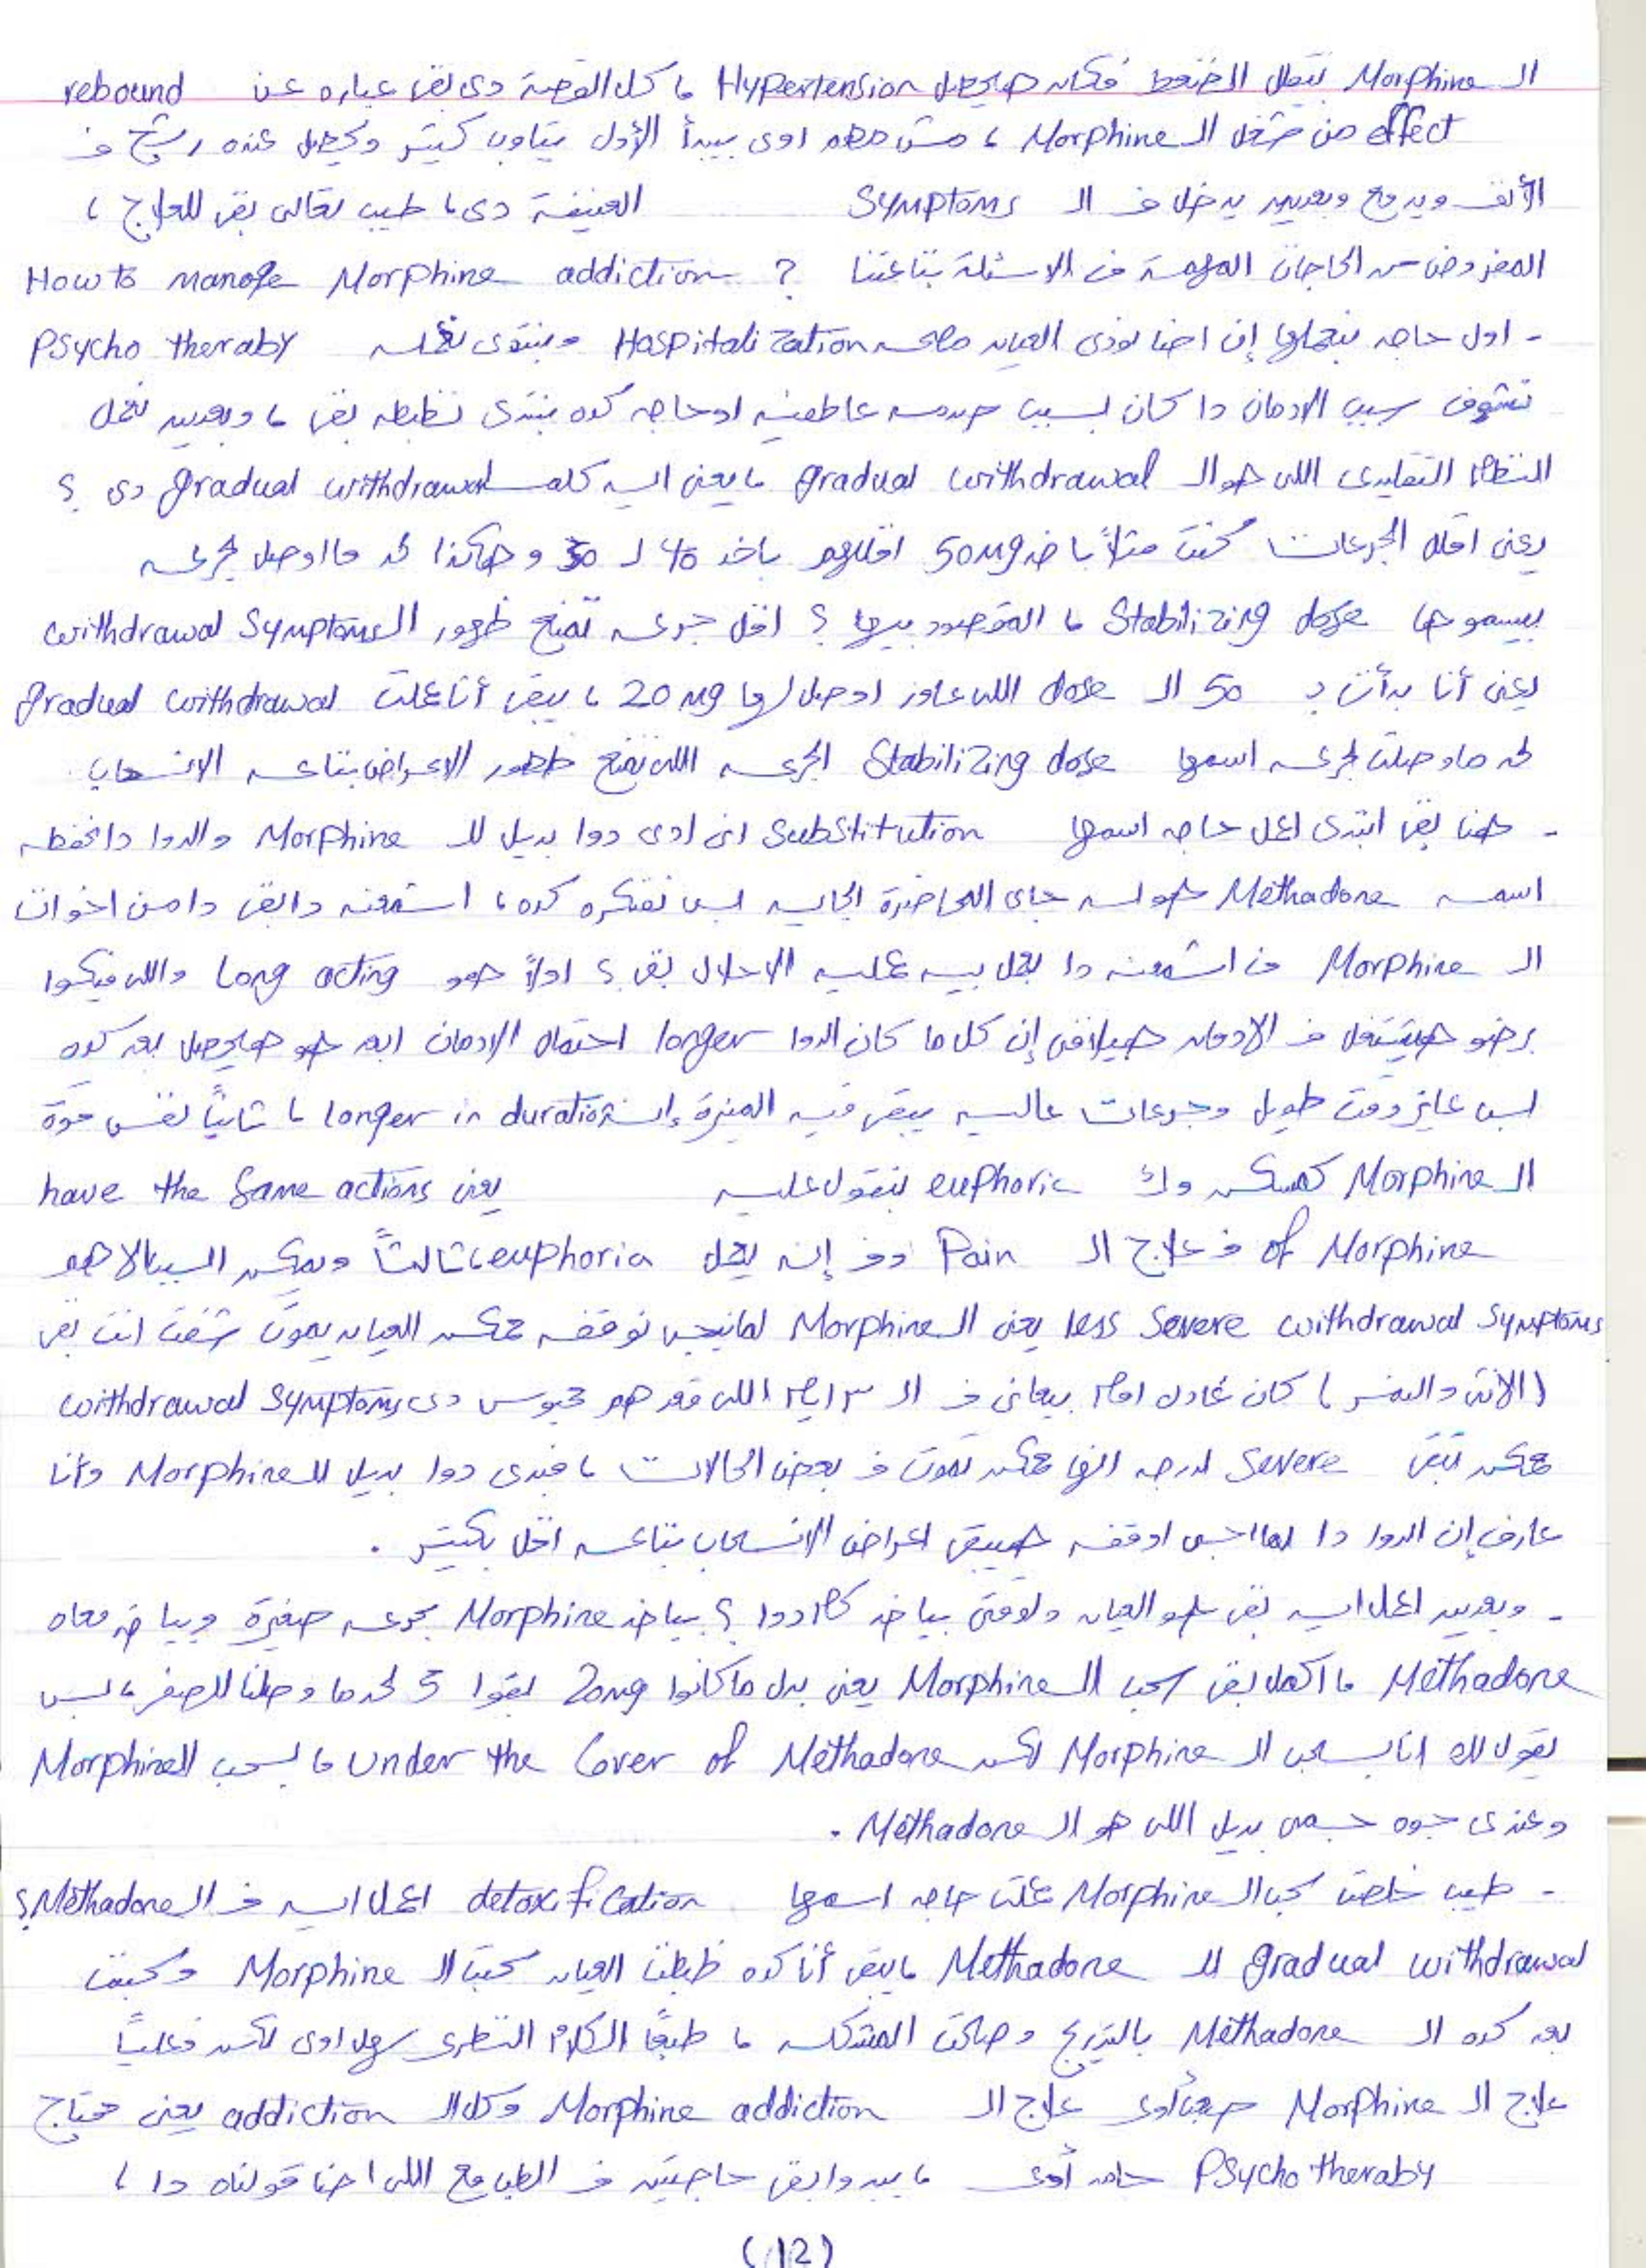 الـ Morphine بيقلل الضغط فكان هيحصل Hypertension ، كل القصة دى بقى عباره عن rebound
effect من شغل الـ Morphine ، مش مهم اوى بيبدأ الأول يتاوب كتير ويحصل عنده رشح فـ
الأنف ويدمع وبعدين يدخل فـ الـ Symptoms العنيفة دى ، طيب تعالى بقى للعلاج ،
المفروض من الحاجات المهمة فى الاسئلة بتاعتنا How to manage Morphine addiction ?
- اول حاجه بنعملها إن احنا نودى العيان مصحه Hospitalization ونبتدى نعمله Psycho theraby
نشوف سبب الادمان دا كان بسبب صدمه عاطفيه او حاجه كده نبتدى نظبطه بقى ، وبعدين نعمل
النظام التقليدى اللى هو الـ gradual withdrawal ، يعنى ايه كلمه gradual withdrawal دى ؟
يعنى اقلل الجرعات كنت مثلاً باخد 50mg اقللهم باخد 40 لـ 30 وهكذا لحد ما اوصل لجرعه
بيسموها Stabilizing dose ، المقصود بيها ؟ اقل جرعه تمنع ظهور الـ withdrawal Symptoms
يعنى أنا بدأت بـ 50 الـ dose اللى عاوز اوصل لها 20 mg ، يبقى أنا عملت gradual withdrawal
لحد ما وصلت لجرعه اسمها Stabilizing dose الجرعه اللى تمنع ظهور الاعراض بتاعه الانسحاب .
- هنا بقى ابتدى اعمل حاجه اسمها Substitution انى ادى دوا بديل للـ Morphine والدوا دا نحفظه
اسمه Methadone هو لسه جاى المحاضرة الجايه بس نفتكره كده ، اشمعنه دا بقى دا من اخوات
الـ Morphine فـ اشمعنه دا بعمل بيه عمليه الاحلال بقى ؟ اولاً هو Long acting واللى فيكوا
برضو هيشتغل فـ الادمان هيلاقى إن كل ما كان الدوا longer احتمال الادمان ابعد هو هيحصل بعد كده
بس عايز وقت طويل وجرعات عاليه يبقى فيه الميزة إنه longer in duration ، ثانياً نفس قوة
الـ Morphine كمسكن وك euphoric بنقول عليه يعنى have the Same actions
of Morphine فـ علاج الـ Pain وفـ إنه يعمل euphoria ، ثالثاً ويمكن السبب الاهم
less Severe withdrawal Symptoms يعنى الـ Morphine لما نيجى نوقفه ممكن العيان يموت شفت انت بقى
(الانف والدفنس) كان عادل امام بيعانى فـ الـ ٣ ايام اللى قعدهم محبوس دى withdrawal Symptoms
ممكن تبقى Severe لدرجه انها ممكن تموت فـ بعض الحالات ، فبدى دوا بديل للـ Morphine وأنا
عارف إن الدوا دا لما اجى اوقفه هيبقى اعراض الانسحاب بتاعته اقل بكتير .
- وبعدين اعمل ايه بقى هو العيان دلوقتى بياخد كام دوا ؟ بياخد Morphine بجرعه صغيرة وبياخد معاه
Methadone ، اكمل بقى سحب الـ Morphine يعنى بدل ما كانوا 20mg بقوا 5 لحد ما وصلنا للصفر ، بس
بقول لك انا بسحب الـ Morphine لكن under the Cover of Methadone ، بسحب الـ Morphine
وعندى جوه جسمى بديل اللى هو الـ Methadone .
- طيب خلصت سحب الـ Morphine عملت حاجه اسمها detoxification اعمل ايه فـ الـ Methadone ؟
gradual withdrawal للـ Methadone ، يبقى أنا كده ظبطت العيان سحبت الـ Morphine وسحبت
بعد كده الـ Methadone بالتدريج وصلحت المشكله ، طبعًا الكلام النظرى سهل اوى لكن فعلياً
علاج الـ Morphine صعب أوى علاج الـ Morphine addiction وكل الـ addiction يعنى محتاج
Psycho theraby جامد أوى ، بيدوا بقى حاجتين فـ العلاج مع اللى احنا قولناه دا ،
(12)